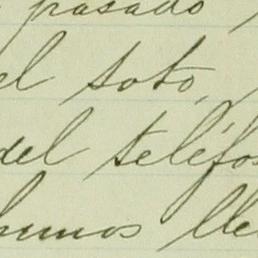 pasado
el soto,
del teléfo
lle